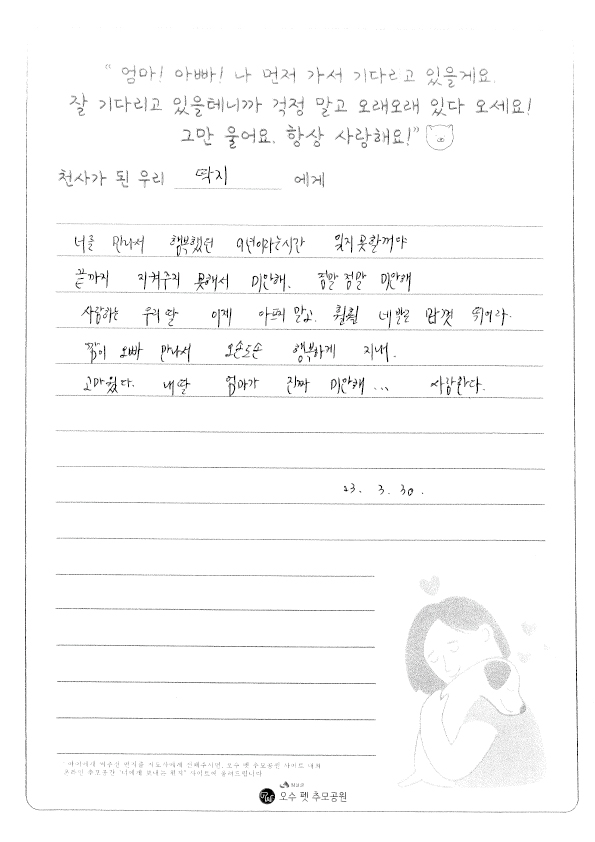 “ 엄마! 아빠! 나 먼저 가서 기다리고 있을게요.
잘 기다리고 있을테니까 걱정 말고 오래오래 있다 오세요!
그만 울어요. 항상 사랑해요!”
천사가 된 우리 딱지 에게
너를 만나서 행복했던 9년이라는시간 잊지못할꺼야
끝까지 지켜주지 못해서 미안해. 정말 정말 미안해
사랑하는 우리딸 이제 아프지 말고. 훨훨 네발로 맘껏 뛰어라.
오빠 만나서 오손도손 행복하게 지내.
고마웠다. 내딸 엄마가 진짜 미안해... 사랑한다.
23. 3. 30.
오수 펫 추모공원 사이트 내의
온라인 추모공간 '너에게 보내는 편지' 사이트에 올려드립니다
오수 펫 추모공원